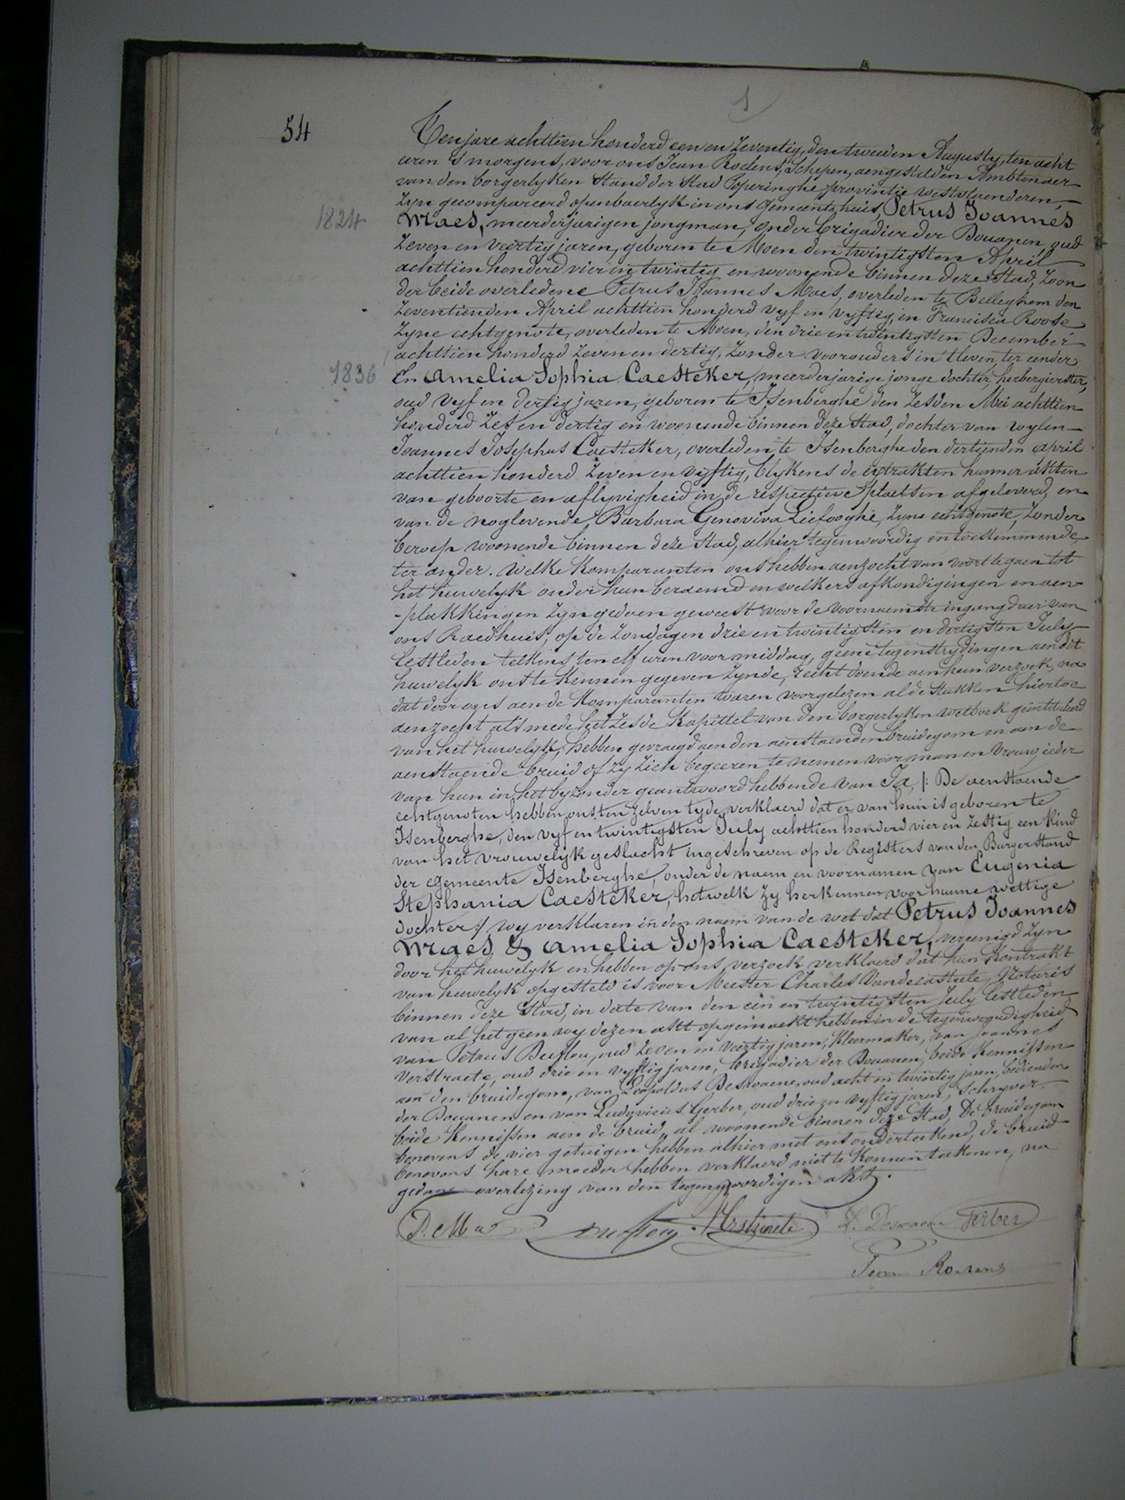 54
Ten jare achttien honderd een en zeventig, den tweeden Augusty, ten acht
uren 's morgens, voor ons Jean Rodens, Schepen, aengestelden Ambtenaer
van den borgerlyken Stand der Stad Poperinghe, provintie Westvlaenderen,
zyn gecompareerd openbaerlyk in ons gemeentehuis, Petrus Joannes
1824
Maes, meerderjarigen jongman, onder brigadier der Douanen, oud
zeven en veertig jaren, geboren te Moen den twintigsten April
achttien honderd vier en twintig en woonende binnen deze Stad, zoon
der beide overledene Petrus Joannes Maes, overleden te Belleghem den
zeventienden April achttien honderd vyf en vyftig, en Francisca Roose
zyne echtgenote, overleden te Moen, den drie en twintigsten December
achttien honderd zeven en dertig, zonder voorouders in t leven, ter eender
1836
En Amelia Sophia Caesteker, meerderjarige jonge dochter, herbergierster,
oud vyf en dertig jaren, geboren te Isenberghe den zesden Mei achttien
honderd zes en dertig en woonende binnen deze Stad, dochter van wylen
Joannes Josephus Caesteker, overleden te Isenberghe den dertienden april
achttien honderd zeven en vyftig, blykens de extrakten hunner akten
van geboorte en aflyvigheid in de respective plaetsen afgeleverd, en
van de noglevende Barbara Genoviva Liefooghe, zyne echtgenote, zonder
beroep woonende binnen deze Stad, alhier tegenwoordig en toestemmende
ter ander. Welke komparanten ons hebben aenzocht van voort te gaen tot
het huwelyk onder hun beraemd en welkers afkondigingen en aen
-plakkingen zyn gedaen geweest voor de voornaemste ingangdeur van
ons Raedhuis, op de zondagen drie en twintigsten en dertigsten July
lestleden telkens ten elf uren voormiddag, geene tegenstrydingen aen dit
huwelyk ons te kennen gegeven zynde, recht doende aen hun verzoek, na
dat door ons aen de komparanten waren voorgelezen al de stukken hiertoe
aenzocht alsmede het zesde kapittel van den borgerlyken wetboek geintituleerd
van het huwelyk, hebben gevraagd aen den aenstaenden bruidegom en aen de
aenstaende bruid of zy zich begeeren te nemen voor man en vrouw, ieder
van hun in het byzonder geantwoord hebbende van Ja, /: De aenstaende
echtgenoten hebben ons ten zelven tyde verklaerd dat er van hun is geboren te
Isenberghe, den vyf en twintigsten July achttien honderd vier en zestig een kind
van het vrouwelyk geslacht ingeschreven op de Registers van den Burgerstand
der gemeente Isenberghe, onder de naem en voornamen van Eugenia
Stephania Caesteker, hetwelk zy herkennen voor hunne wettige
dochter / wy verklaren in den naem van de wet dat Petrus Joannes
Maes & Amelia Sophia Caesteker, vereenigd zyn
door het huwelyk en hebben op ons verzoek verklaerd dat hun kontrakt
van huwelyk opgesteld is voor Meester Charles Vandecasteele Notaris
binnen deze Stad, in date van den een en twintigsten July lestleden
van al het geen wy dezen akt opgemaekt hebben in de tegenwoordigheid
van Petrus Buflou, oud zeven en veertig jaren, kleermaker, van Joannes
Verstraete, oud drie en vyftig jaren, brigadier der Douanen, beide kennissen
aen den bruidegom, van Leopoldus Deswaene, oud acht en twintig jaren, bediende
der Douanen en van Ludovicus Gerber, oud drie en vyftig jaren, Schryver
beide kennissen aen de bruid, al woonende binnen deze Stad. De bruidegom
benevens de vier getuigen hebben alhier met ons onderteekend, de bruid
benevens hare moeder hebben verklaerd niet te konnen teekenen, na
gedane overlezing van den tegenwoordigen akt.
P. J. Maes Verstraete L. Deswaene Gerber
Jean Rodens